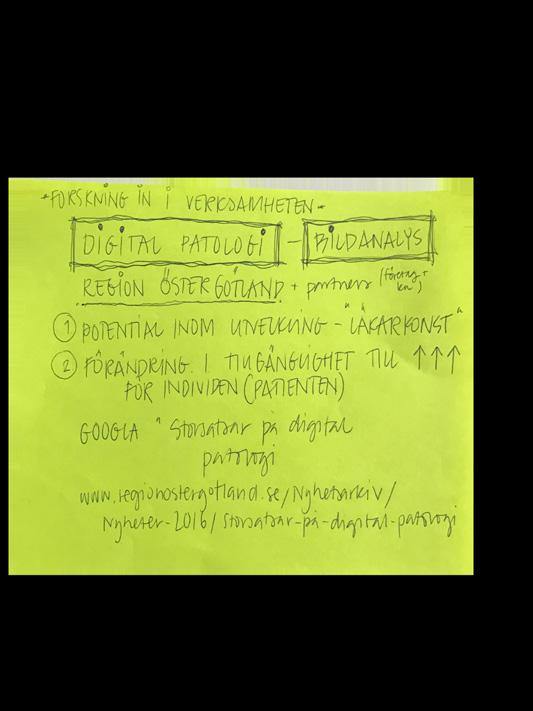 -FORSKNING IN I VERKSAMHETEN-
DIGITAL PATOLOGI - BILDANALYS
REGION ÖSTERGÖTLAND + partners (företag +
① POTENTIAL INOM UTVECKLING - "LÄKARKONST"
② FÖRÄNDRING I TILLGÄNGLIGHET TILL ↑↑↑
FÖR INDIVIDEN (PATIENTEN)
GOOGLA " Storsatsar på digital
patologi
www.regionostergotland.se/Nyhetsarkiv/
Nyheter-2016/Storsatsar-på-digital-patologi